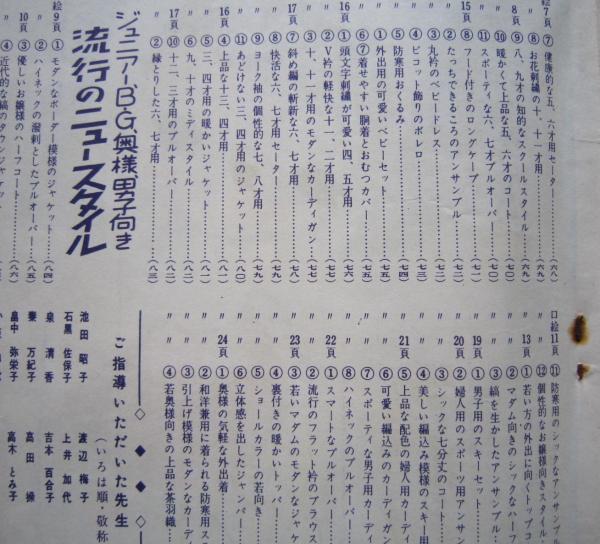 絵7頁 ⑦ 健康的な五、六才用セーター……(六八)
〃 8頁 ⑧ お花刺繍の十、十一才用……(六九)
〃 〃 ⑨ 八、九才の知的なスクールスタイル……(六九)
〃 〃 ⑩ 暖かくて上品な五、六才のコート
〃 〃 ⑪ スポーティな六、七才プルオーバー
〃 15頁 ⑧ フード付きのロングケープ
〃 〃 ② たっちできるころのアンサンブル
〃 〃 ③ 丸衿のベビードレス
〃 〃 ④ ピコット飾りのボレロ……(七三)
〃 〃 ⑤ 防寒用おくるみ……(七四)
〃 〃 ① 外出用の可愛いベビーセット
〃 〃 ⑥⑦ 着せやすい胴着とおむつカバー……(七五)
〃 16頁 ① 頭文字刺繍が可愛い四、五才用……(七六)
〃 〃 ② V衿の軽快な十一、二才用
〃 〃 ③ 十、十一才用のモダンなカーディガン……(七七)
〃 17頁 ④ 斜め編の斬新な六、七才用
〃 〃 ⑧ 快活な六、七才用セーター
〃 〃 ⑨ ヨーク袖の個性的な七、八才用……(七九)
〃 〃 ⑪ あどけない三、四才用のジャケット……(八〇)
〃 16頁 ④ 上品な十三、四才用
〃 〃 ⑤ 三、四才用の暖かいジャケット……(八一)
〃 〃 ⑥ 九、十才のミディスタイル
〃 17頁 ⑩ 十二、三才用のプルオーバー
〃 〃 ② 縁とりした六、七才用……(八三)
ジュニアー・B・G・奥様・男子向き
流行のニュースタイル
絵9頁 ① モダンなボーダー模様のジャケット……(八四)
〃 〃 ② ハイネックの溌剌としたプルオーバー……(八五)
〃 10頁 ③ 優しいお嬢様のハーフコート
〃 〃 ④ 近代的な縞のタウンジャケット
口絵11頁 ⑪ 防寒用のシックなアンサンブル
〃 〃 ⑫ 個性的なお嬢様向きスタイル
〃 13頁 ① 若い方の外出に向くトップコ
〃 〃 ② マダム向きのシックなハーフ
〃 〃 ③ 縞を生かしたアンサンブル
〃 19頁 ① 男子用のスキーセット
〃 20頁 ② 婦人用のスポーツ用アンサン
〃 〃 ③ シックな七分丈のコート
〃 〃 ④ 美しい編込み模様のスキー用
〃 21頁 ⑤ 上品な配色の婦人用カーディ
〃 〃 ⑥ 可愛い編込みのカーディガン
〃 〃 ⑦ スポーティな男子用カーディ
〃 〃 ⑧ ハイネックのプルオーバー
〃 22頁 ① スマートなプルオーバー
〃 〃 ② 流行のフラット衿のブラウス
〃 23頁 ③ 若いマダムのモダンなジャケ
〃 〃 ④ 裏付きの暖かいトッパー
〃 〃 ⑤ ショールカラーの若向き
〃 〃 ⑥ 立体感を出したジャンパー
〃 24頁 ① 奥様の気軽な外出着
〃 〃 ② 和洋兼用に着られる防寒用ス
〃 〃 ③ 引上げ模様のモダンなカーディ
〃 〃 ④ 若奥様向きの上品な茶羽織
ご指導いただいた先生
(いろは順・敬称
池田 昭子 渡辺 梅子
石黒 佐保子 上井 加代
泉 清香 吉本 百合子
秦 万紀子 高田 操
畠中 弥栄子 高木 とみ子